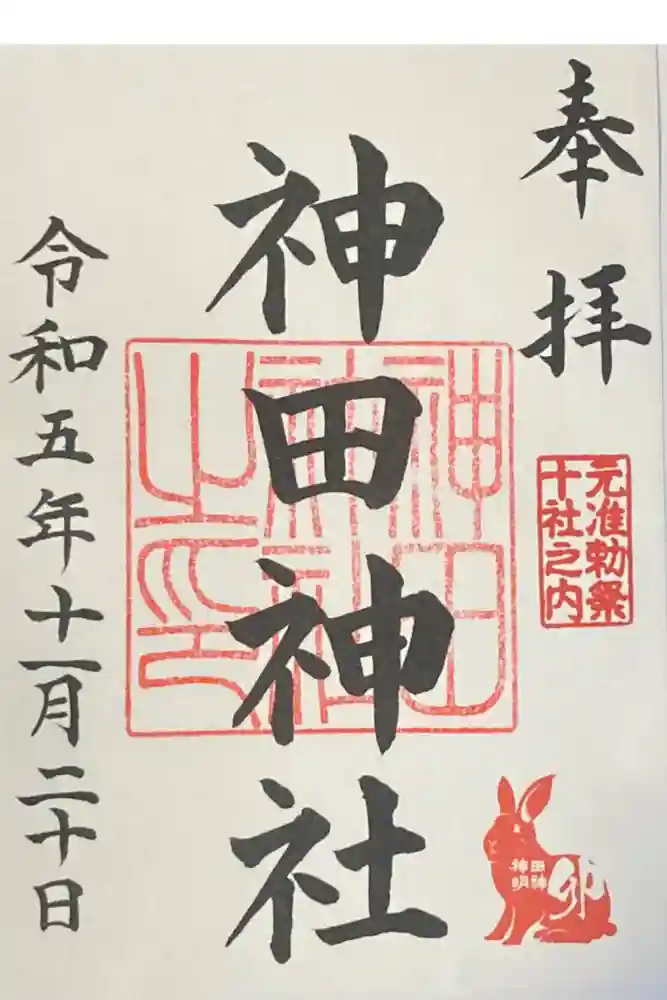 奉拝
元准勅祭
十社之内
神田神社
神田神社之印
田神
神明
卯
令和五年十一月二十日